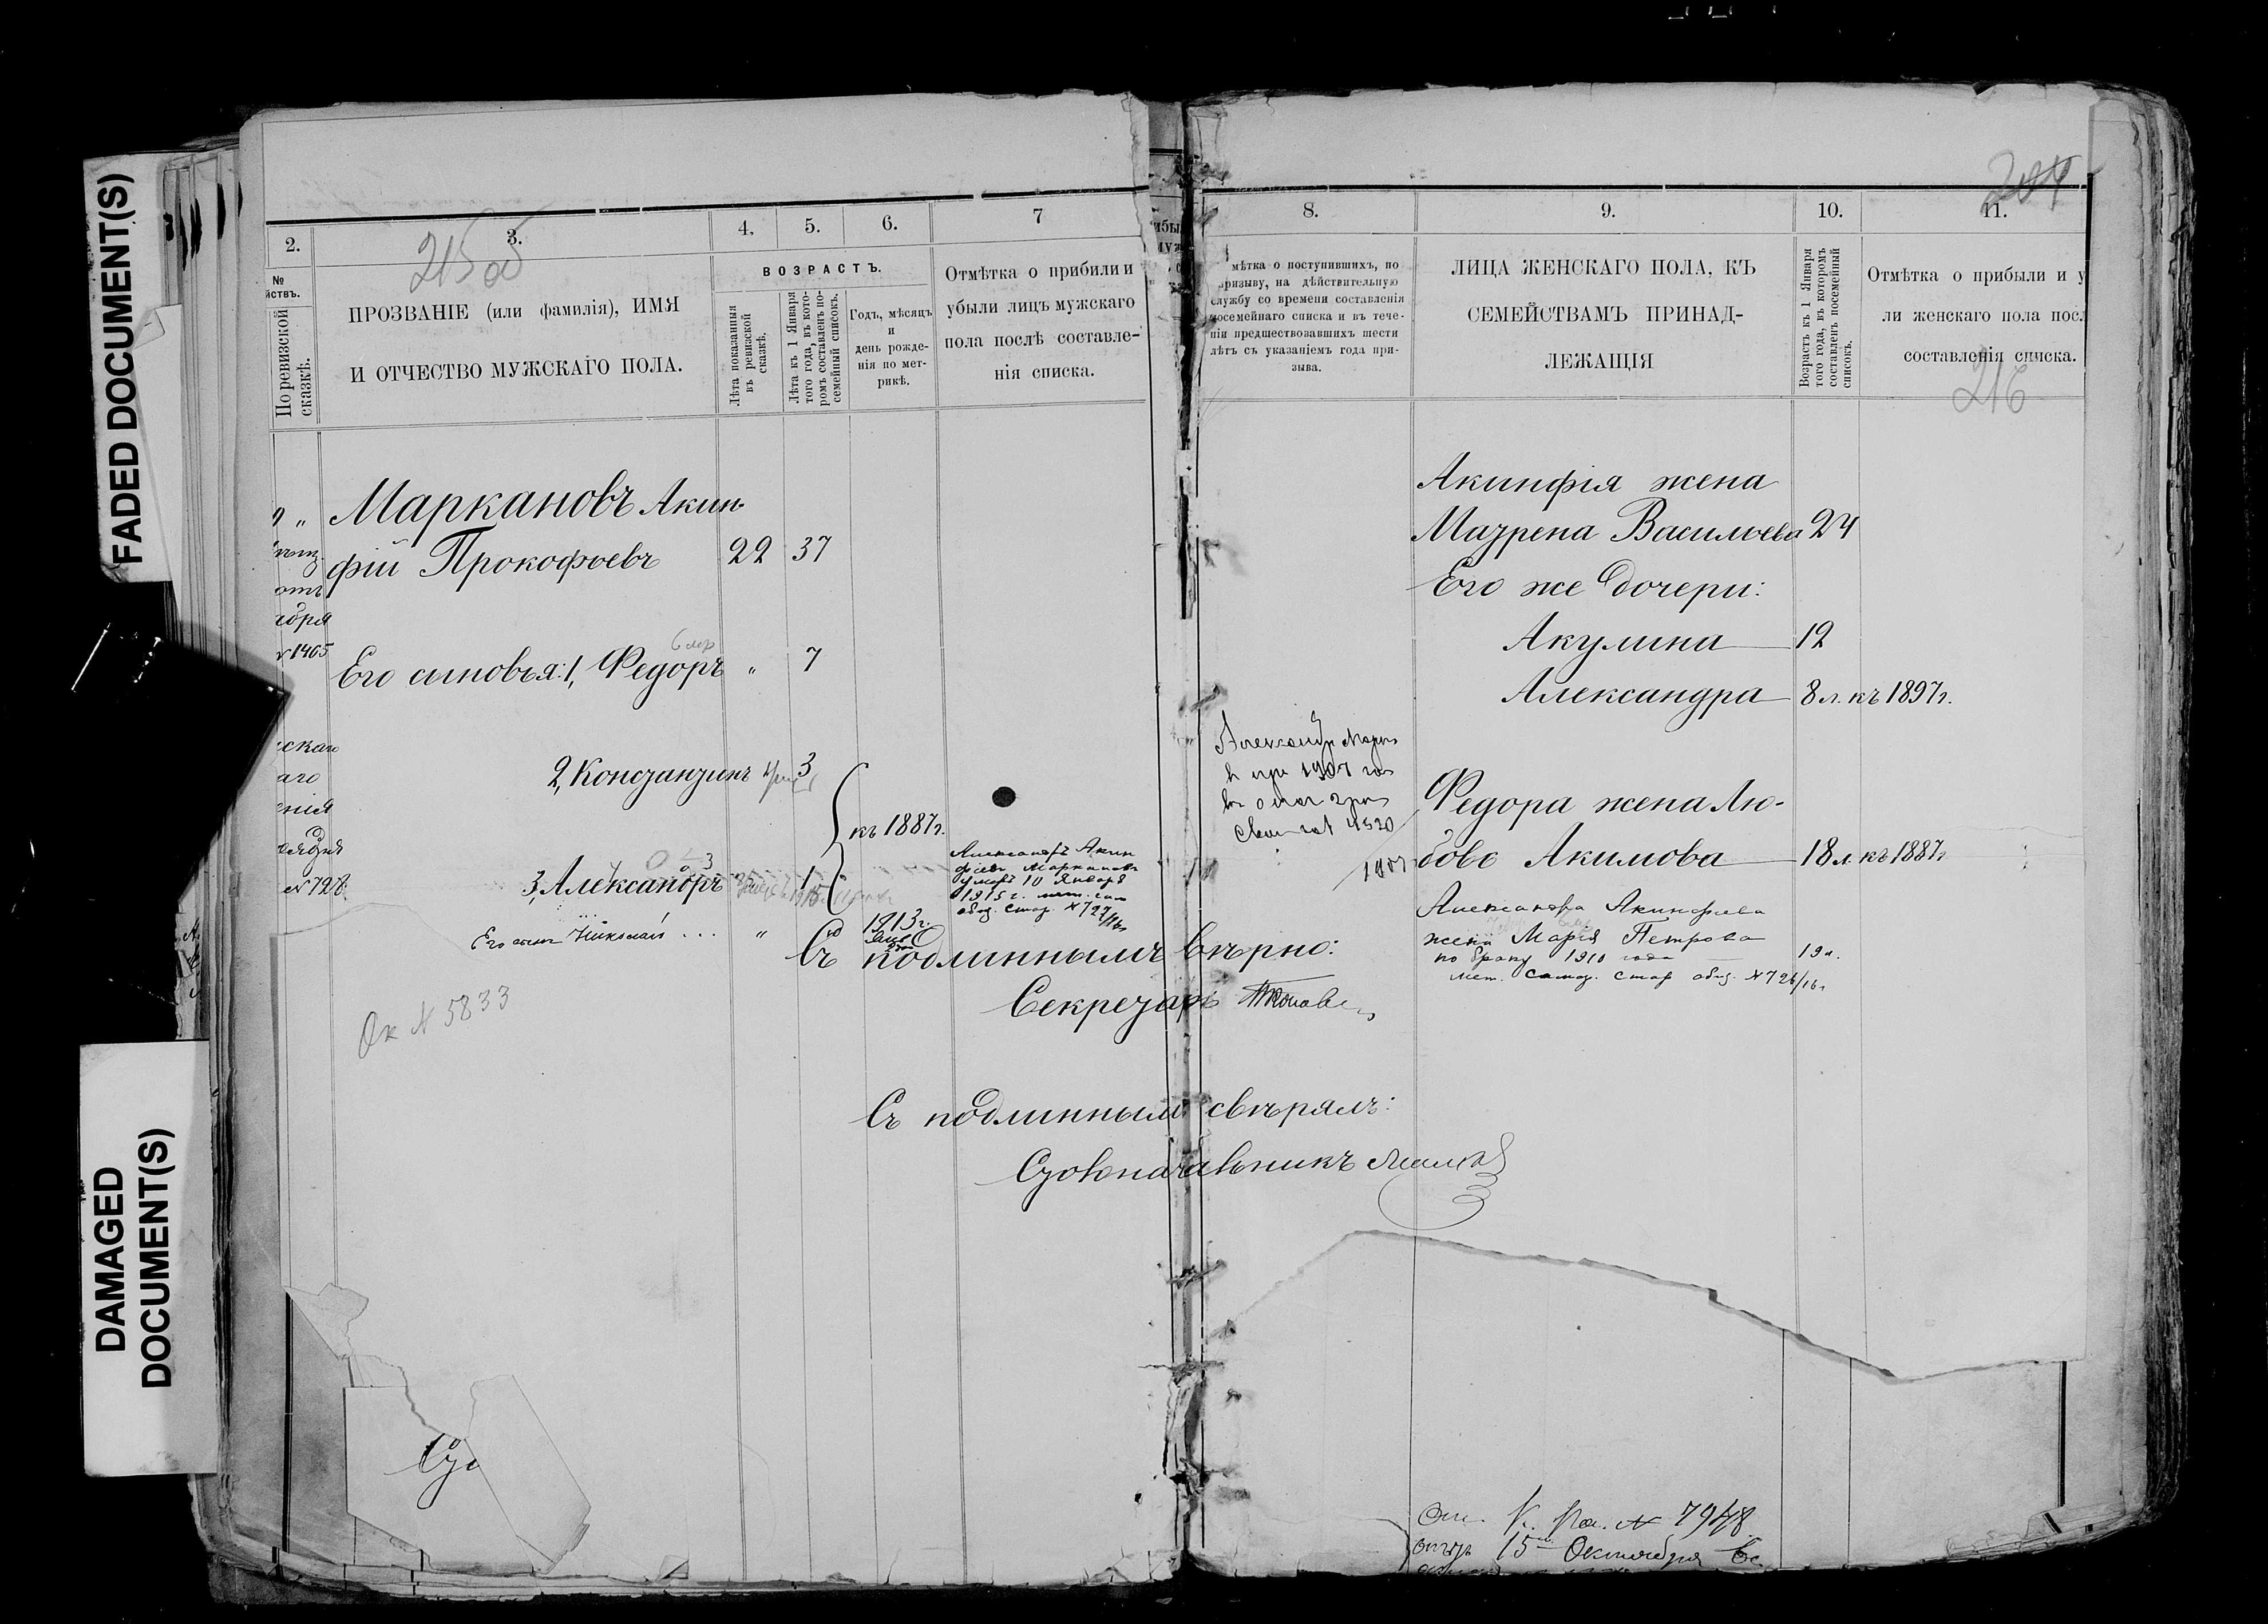 FADED DOCUMENT(S)
DAMAGED
DOCUMENT(S)
2.
3.
4.
5.
6.
7
215 об
№
йствъ.
По ревизской
сказкѣ.
ПРОЗВАНІЕ (или фамилія), ИМЯ
И ОТЧЕСТВО МУЖСКАГО ПОЛА.
ВОЗРАСТЪ.
Лѣта показанныя
въ ревизской
сказкѣ.
Лѣта къ 1 Января
того года, въ кото-
ромъ составленъ по-
семейный списокъ.
Годъ, мѣсяцъ
и
день рожде-
нія по мет-
рикѣ.
Отмѣтка о прибили и
убыли лицъ мужскаго
пола послѣ составле-
нія списка.
Маркановъ Акин-
фій Прокофьевъ 22 37
отъ
ября
№ 1465
Его сыновья: 1, Федоръ „ 7
скаго
аго
енія
2, Констанзинъ 3
къ 1887 г.
№ 728
3, Александръ 1
Александръ Акин
фіевъ Маркановъ
умеръ 10 Января
1915 г.
№ 727/16
Его сынъ Николай . . . „
1913 г.
Ок № 5833
Съ подлиннымъ вѣрно:
Секретарь
Съ подлиннымъ свѣрялъ:
Столоначальникъ
204
8.
9.
10.
11.
мѣтка о поступившихъ, по
призыву, на дѣйствительную
службу со времени составленія
посемейнаго списка и въ тече-
ніи предшествовавшихъ шести
лѣтъ съ указаніемъ года при-
зыва.
ЛИЦА ЖЕНСКАГО ПОЛА, КЪ
СЕМЕЙСТВАМЪ ПРИНАД-
ЛЕЖАЩІЯ
Возрастъ къ 1 Января
того года, въ которомъ
составленъ посемейный
списокъ.
Отмѣтка о прибыли и у
ли женскаго пола посл
составленія списка.
216
Акинфія жена
Матрена Васильева 24
Его же дочери:
Акулина 12
Александра 8 л. къ 1897 г.
Александръ
1907
4520
1907
Федора жена Лю-
бовь Акимова 18 л. къ 1887 г.
Александра Акинфіева
жена Марія Петрова
по браку 1910 года 19 л.
№ 726/16 г.
№ 7948
15 Октября